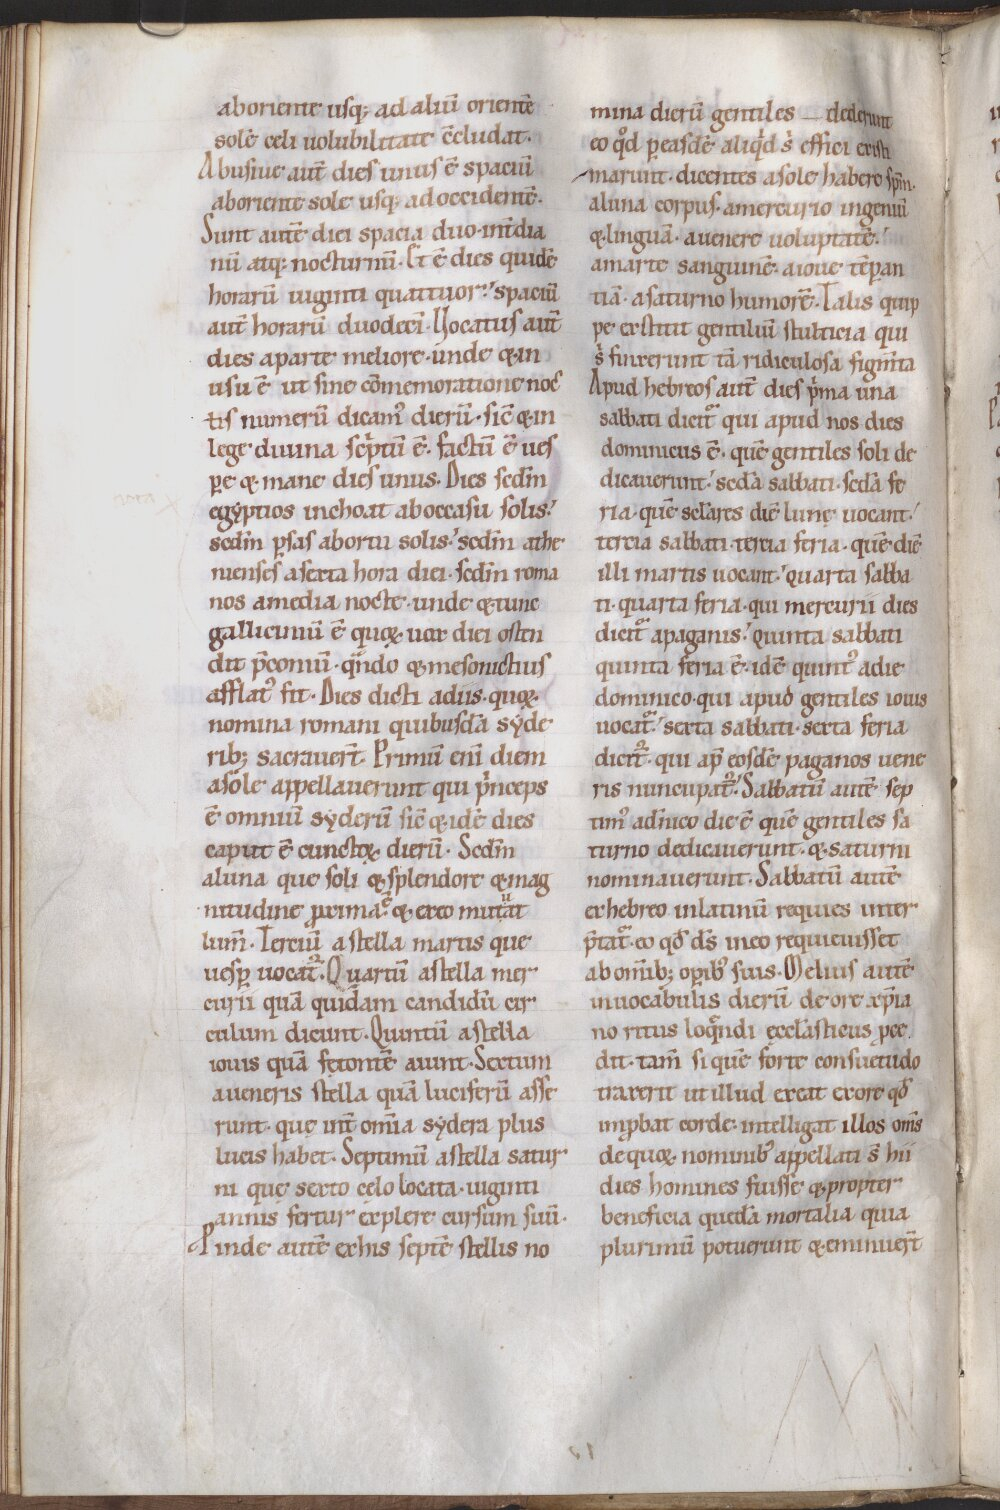 aboriente usq; ad aliū orientē
solē celi uolubilitate c̄cludat.
Abusiue aut̄ dies unus ē spaciū
aboriente sole usq; adoccidentē.
Sunt autē diei spacia duo. int̄dia
nū atq; nocturnū. Et ē dies quidē
horarū uiginti quattuor. spaciū
aut̄ horarū duodeci. Uocatus aut̄
dies aparte meliore. unde & in
usu ē ut sine cōmemoratione noc
tis numerū dicam᾽ dierū. sic̄ & in
lege diuina scptū ē. factū ē ues
pe & mane dies unus. Dies sedm̄
egyptios inchoat aboccasu solis.
sedm̄ psas abortu solis. sedm̄ athe
nienses asexta hora diei. sedm̄ roma
nos amedia nocte. unde & tunc
gallicíniū ē quoꝝ uox diei osten
dit p̄coniū. qn̄do & mesonictius
afflat᾽ fit. Dies dicti adiis. quoꝝ
nomina romani quibusdā syde
rib; sacrauer̄t. Primū eni diem
asole appellauerunt qui p̄nceps
ē omniū syderū sic̄ & idē dies
caput ē cunctoꝝ dierū. Sedm̄
aluna que soli & splendore & mag
nitudine ꝓxima ē. & exeo mutuat
lum̄. Terciū astella martis que
uesp uocat᷑. Quartū astella mer
curii quā quidam candidū cir
culum dicunt. Quintū astella
iouis quā fetontē aiunt. Sextum
aueneris stella quā luciferū asse
runt. que int̄ om̄ia sydera plus
lucis habet. Septimū astella satur
ni que sexto celo locata. uiginti
annis fertur explere cursum suū.
Pinde autē exhis septē stellis no
mina dierū gentiles dederunt
eo qd̄ peasdē aliqd s̄ effici existi
marunt. dicentes asole habere spm̄.
aluna corpus. amercurio ingeniū
& linguā. auenere uoluptatē.
amarte sanguinē. aioue tēpan
tiā. asaturno humorē. Talis quip
pe extitit gentiliū stulticia qui
s̄ finxerunt tā ridiculosa figm̄ta
Apud hebreos aut̄ dies p̄ma una
sabbati dicit᷑ qui apud nos dies
dominicus ē. quē gentiles soli de
dicauerunt. sedā sabbati. sedā fe
ria. quē sclares diē lunę uocant.
tercia sabbati. tercia feria. quē diē
illi martis uocant. quarta sabba
ti. quarta feria. qui mercurii dies
dicit᷑ apaganis. Quinta sabbati
quinta feria ē. idē quint᾽ adie
dominico. qui apud gentiles iouis
uocat᷑. sexta sabbati. sexta feria
dicit᷑. qui ap̄ eosdē paganos uene
ris nuncupat᷑. Sabbatū autē sep
tim᾽ adn̄ico die ē quē gentiles sa
turno dedicauerunt. & saturni
nominauerunt. Sabbatū autē
exhebreo inlatinū requies inter
p̄tat᷑. eo qd̄ ds̄ ineo requieuisset
ab om̄ib; opib᾽ suis. Melius autē
inuocabulis dierū de ore xp̄ia
no ritus loqndi ęccl̄asticus pce
dit. tam̄ si quē forte consuetudo
traxerit ut illud exeat exore qd̄
inpbat corde. intelligat illos oms̄
dequoꝝ nominib᾽ appellati s̄ hii
dies homines fuisse & propter
beneficia quedā mortalia quia
plurimū potuerunt & eminuer̄t